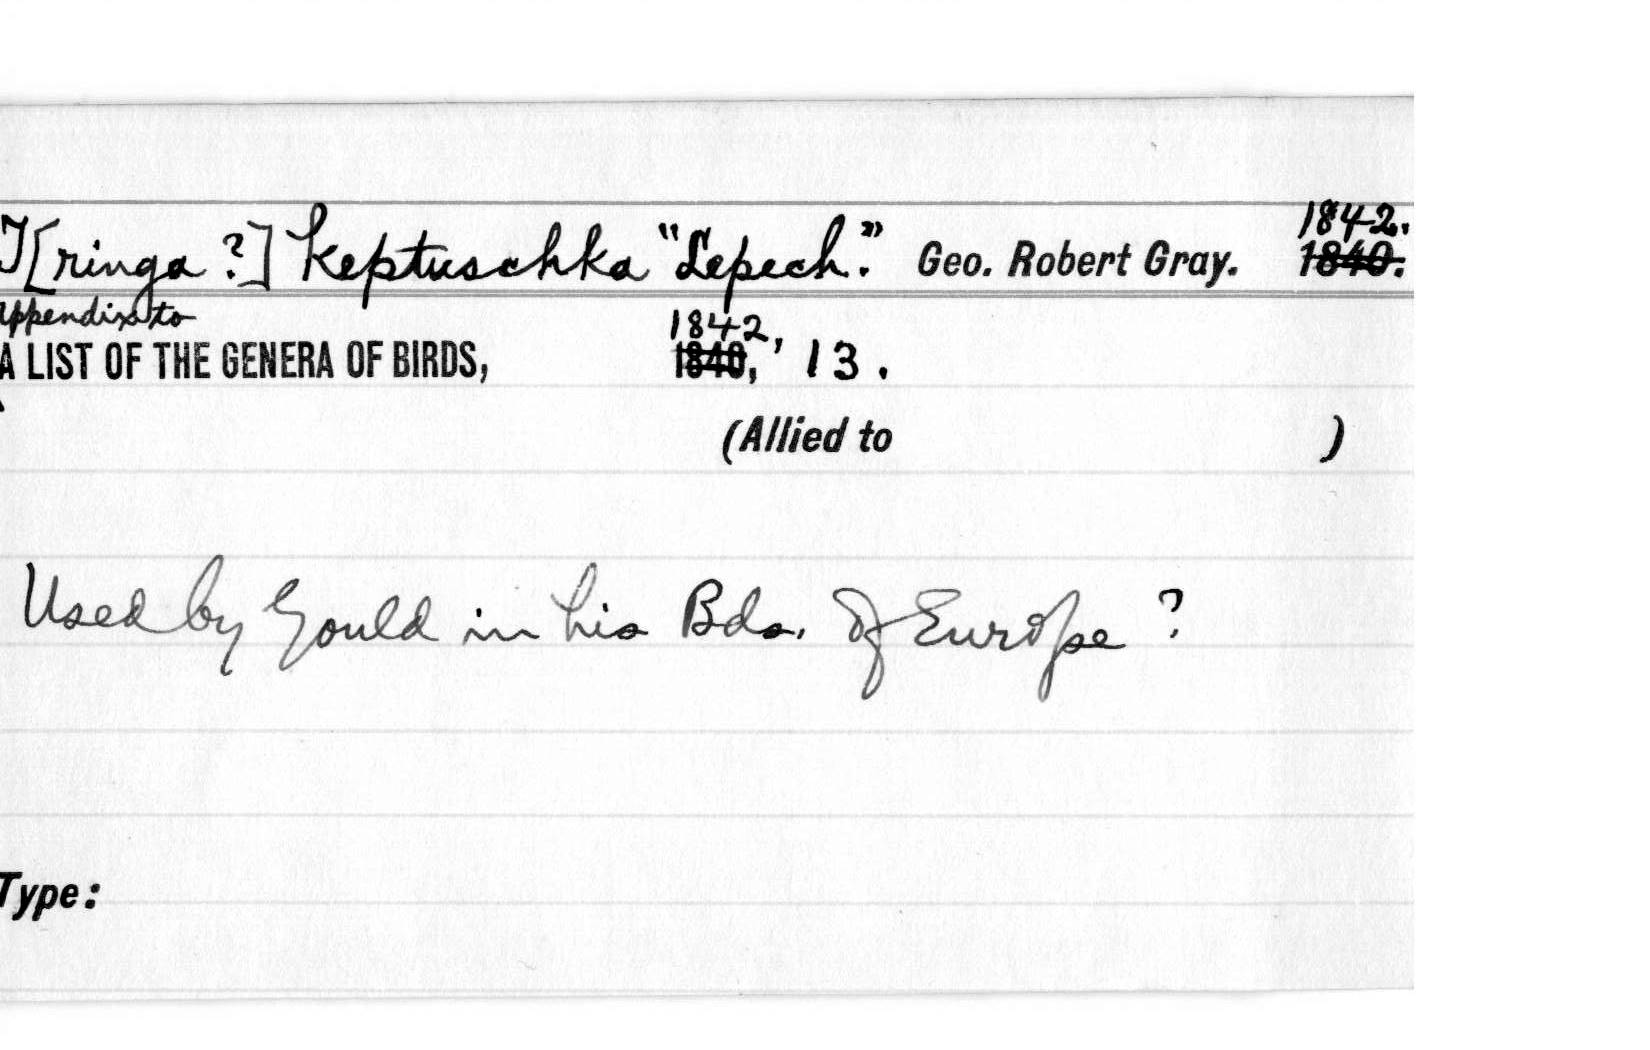 1842.
T[ringa ?] keptuschka "Lepech." Geo. Robert Gray. 1840.
Appendix to 1842,
A LIST OF THE GENERA OF BIRDS, 1840, 13.
(Allied to )
Used by Gould in his Bds. of Europe ?
Type: